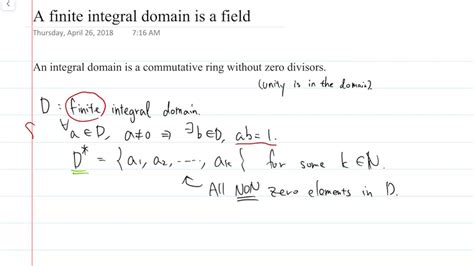 A finite integral domain is a field
Thursday, April 26, 2018 7:16 AM
An integral domain is a commutative ring without zero divisors.
(unity is in the domain)
D : finite integral domain.
∀a ∈ D, a ≠ 0 ⇒ ∃b ∈ D, ab = 1.
D* = {a₁, a₂, ....., aₖ} for some k ∈ ℕ.
All NON zero elements in D.